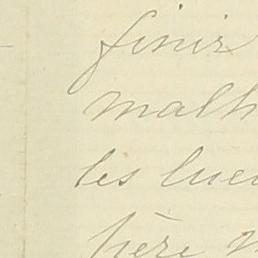 finir
malh
les lueu
père n